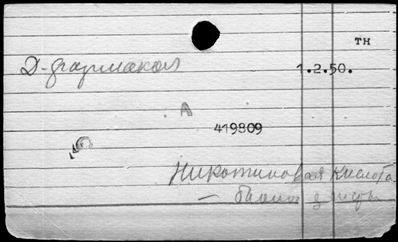 тн
Д-фармакол 1.2.50.
А
419809
Никотиновая кислота
—